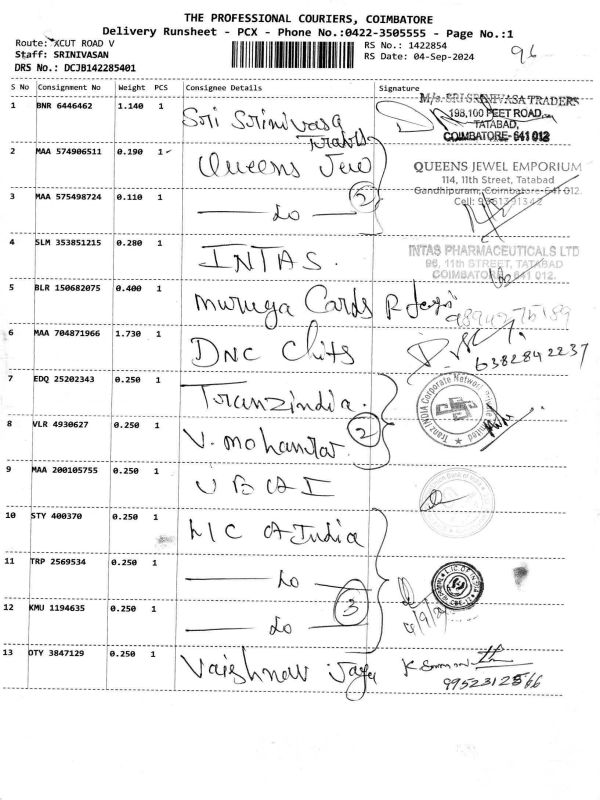 THE PROFESSIONAL COURIERS, COIMBATORE
Delivery Runsheet - PCX - Phone No.:0422-3505555 - Page No.:1
Route: XCUT ROAD V
Staff: SRINIVASAN
DRS No.: DCJB142285401
RS No.: 1422854
RS Date: 04-Sep-2024
96
S No Consignment No Weight PCS Consignee Details Signature
1 BNR 6446462 1.140 1 Sri Srinivasa Traders
M/s. SRI SRINIVASA TRADERS
198,100 FEET ROAD,
TATABAD,
COIMBATORE- 641 012
2 MAA 574906511 0.190 1 Queens Jew
QUEENS JEWEL EMPORIUM
114, 11th Street, Tatabad
Gandhipuram, Coimbatore-641 012.
3 MAA 575498724 0.110 1 Do 2
4 SLM 353851215 0.280 1 INTAS.
INTAS PHARMACEUTICALS LTD
96, 11th STREET, TATABAD
COIMBATORE 641 012.
5 BLR 150682075 0.400 1 Muruga Cards
6 MAA 704871966 1.730 1 DNC Chits
6382842237
7 EDQ 25202343 0.250 1 Tranzindia.
Tranz INDIA Corporate Network Private Limited
8 VLR 4930627 0.250 1 V. mohan 2
9 MAA 200105755 0.250 1 UBI
10 STY 400370 0.250 1 LIC of India
11 TRP 2569534 0.250 1 Do
L.I.C. OF INDIA
12 KMU 1194635 0.250 1 Do 3
13 OTY 3847129 0.250 1 Vaishnav
9952312566